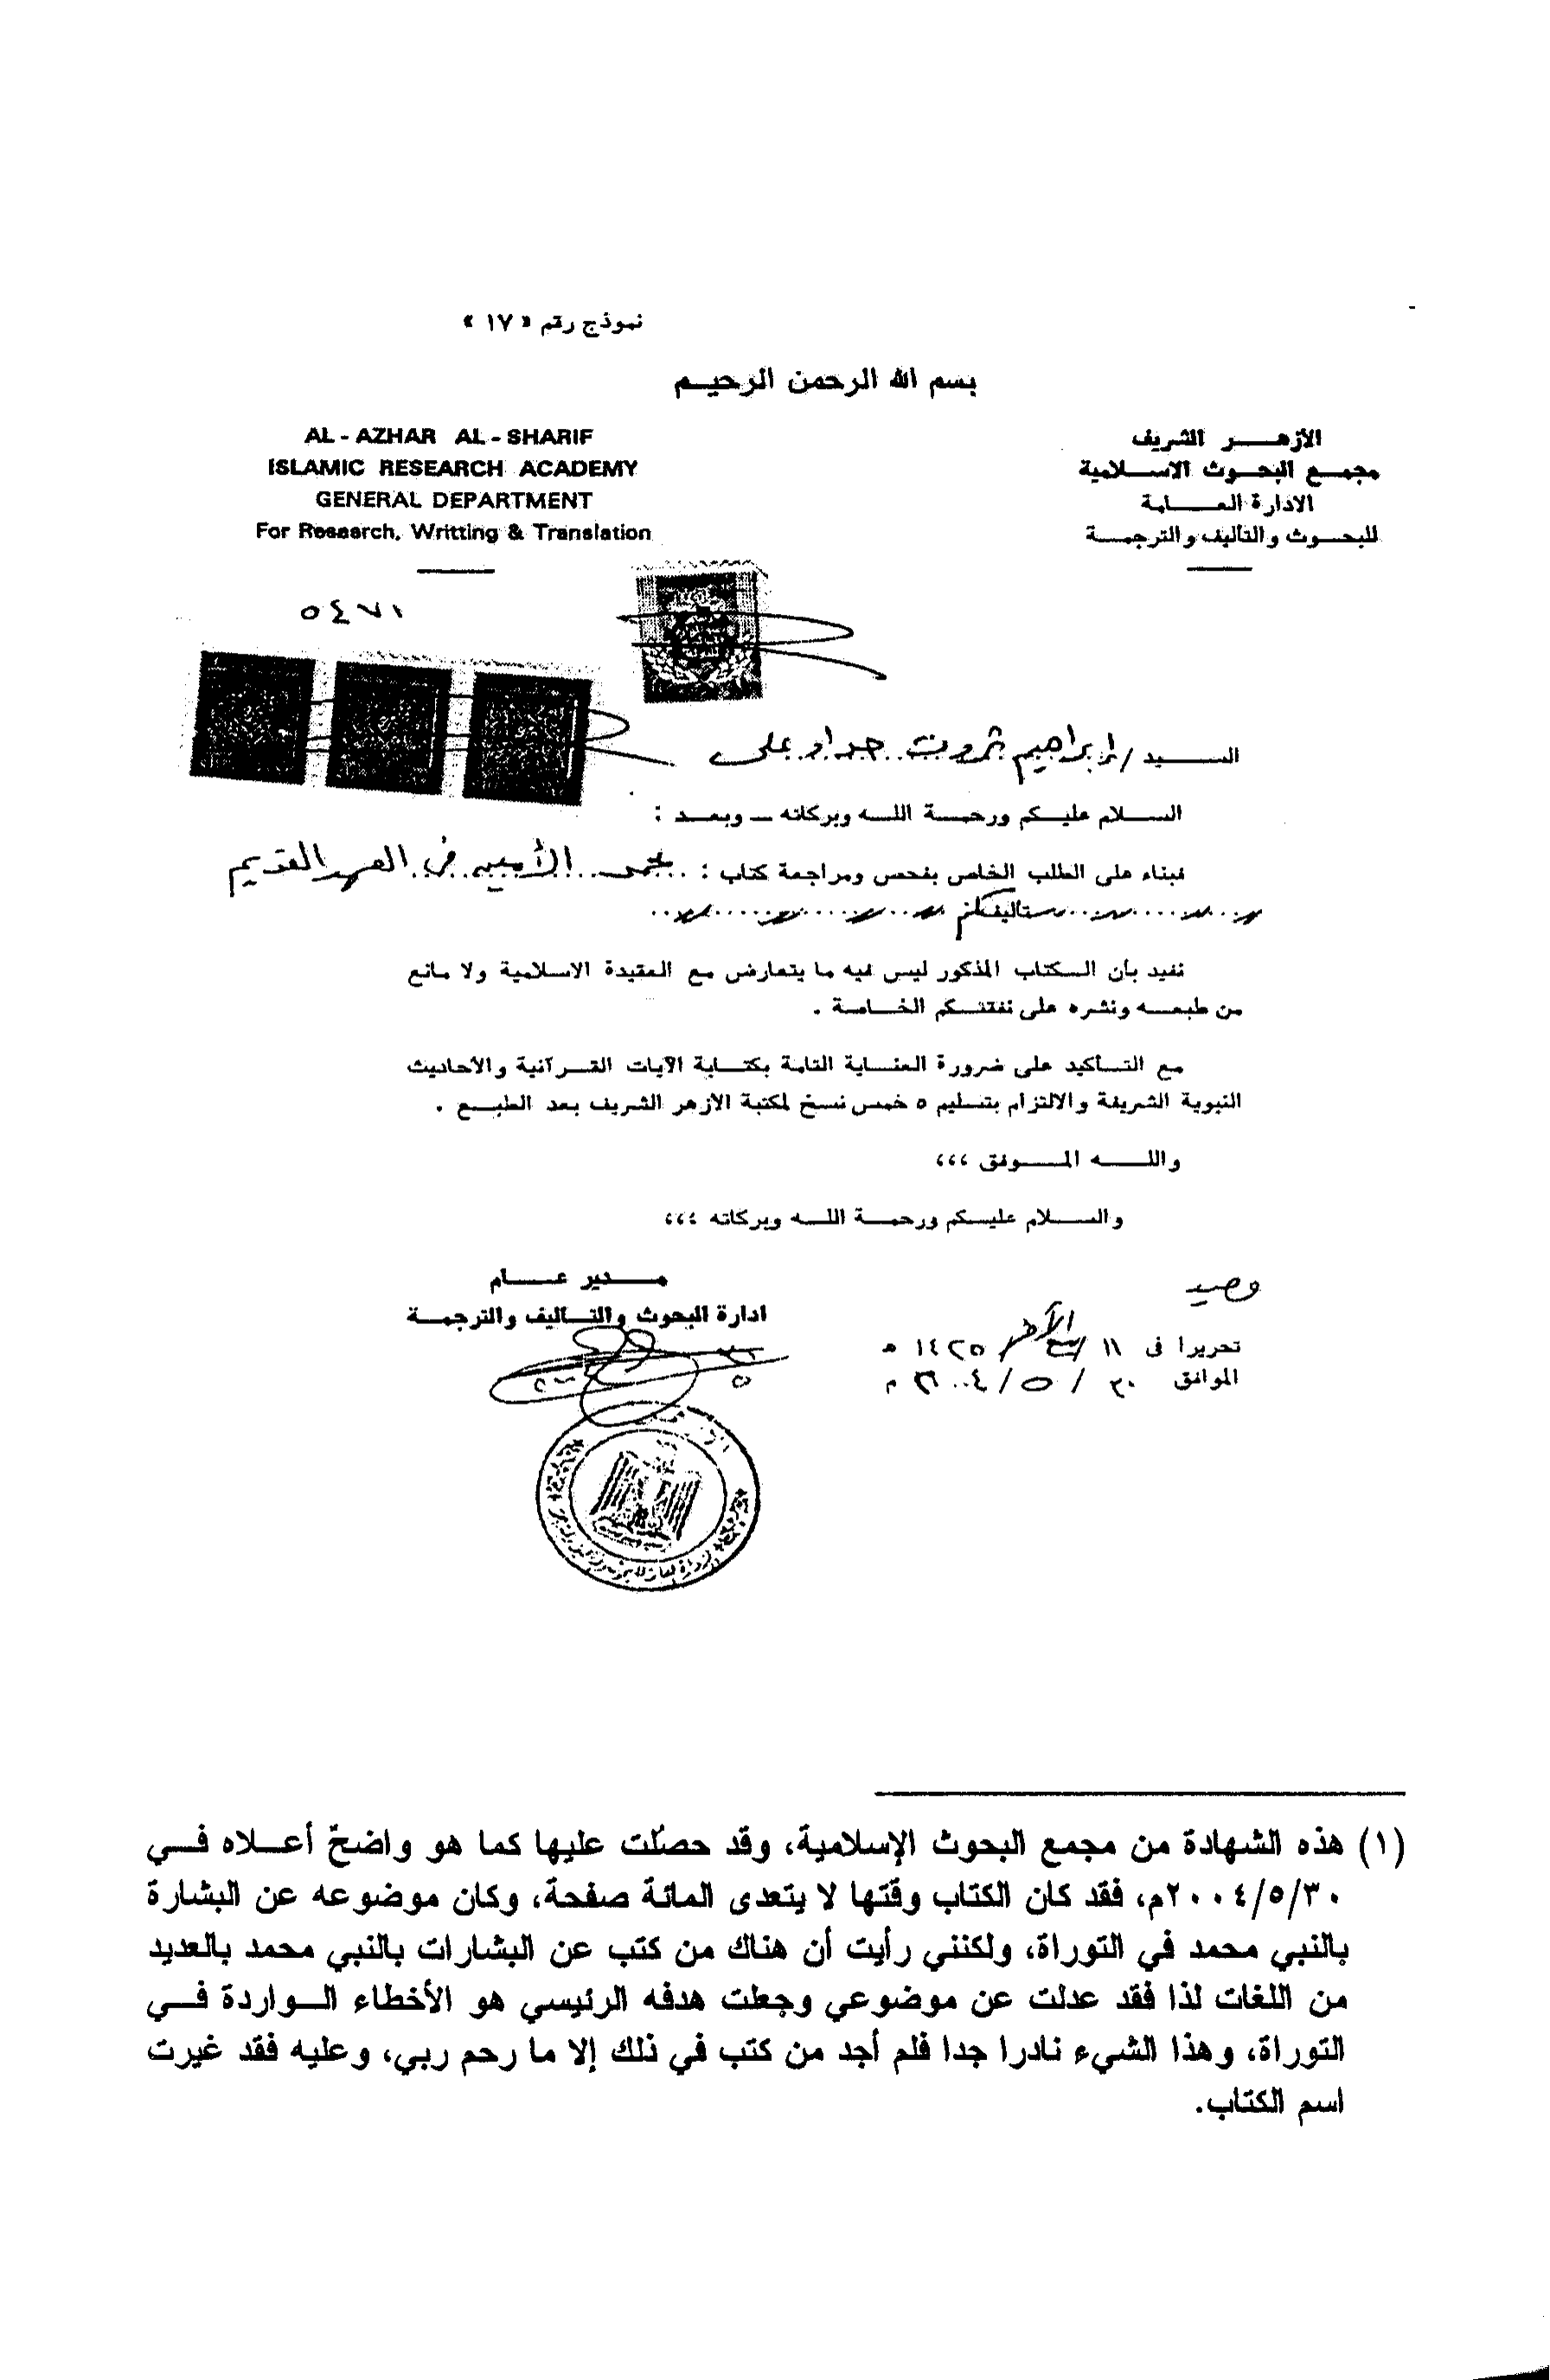 نموذج رقم « ١٧ »
بسم الله الرحمن الرحيم
الأزهر الشريف
مجمع البحوث الاسلامية
الادارة العامة
للبحوث والتأليف والترجمة
AL - AZHAR AL - SHARIF
ISLAMIC RESEARCH ACADEMY
GENERAL DEPARTMENT
For Research, Writting & Translation
السيد / إبراهيم ثروت حداد على
السلام عليكم ورحمة الله وبركاته ــ وبعد :
فبناء على الطلب الخاص بفحص ومراجعة كتاب : الأمين فى العهد القديم
تأليفكم
نفيد بأن الكتاب المذكور ليس فيه ما يتعارض مع العقيدة الاسلامية ولا مانع
من طبعه ونشره على نفقتكم الخاصة .
مع التأكيد على ضرورة العناية التامة بكتابة الآيات القرآنية والأحاديث
النبوية الشريفة والالتزام بتسليم ٥ خمس نسخ لمكتبة الأزهر الشريف بعد الطبع .
والله الموفق ،،،
والسلام عليكم ورحمة الله وبركاته ،،،
مدير عام
ادارة البحوث والتأليف والترجمة
تحريرا فى ١١ / ربيع الآخر / ١٤٢٥ هـ
الموافق ٣٠ / ٥ / ٢٠٠٤ م
(١) هذه الشهادة من مجمع البحوث الإسلامية، وقد حصلت عليها كما هو واضح أعلاه في
٢٠٠٤/٥/٣٠م، فقد كان الكتاب وقتها لا يتعدى المائة صفحة، وكان موضوعه عن البشارة
بالنبي محمد في التوراة، ولكنني رأيت أن هناك من كتب عن البشارات بالنبي محمد بالعديد
من اللغات لذا فقد عدلت عن موضوعي وجعلت هدفه الرئيسي هو الأخطاء الواردة في
التوراة، وهذا الشيء نادرا جدا فلم أجد من كتب في ذلك إلا ما رحم ربي، وعليه فقد غيرت
اسم الكتاب.